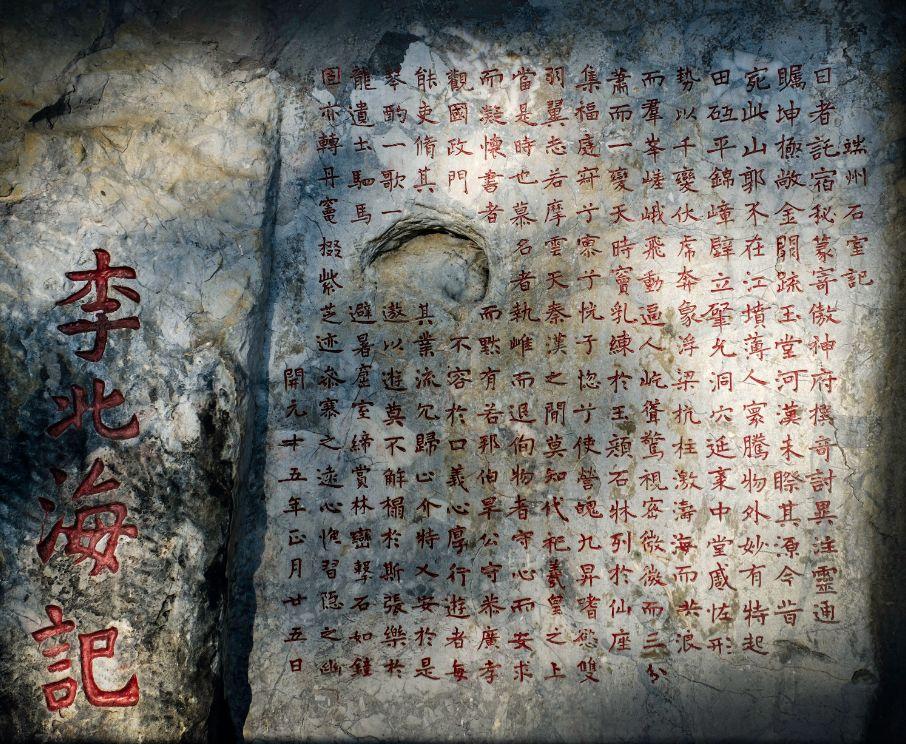 端州石室記
日者託宿秘篆寄傲神府撲奇討異注靈通
矚坤極敞金闕疏王堂河漢未際其源今昔
宛此山郭不在江墳薄人寰騰物外妙有特起
田砥平錦嶂壁立壑允洞穴延袤中堂感佐形
勢以千變伏虎奔象浮梁抗柱激海而共浪
而羣峯嵯峨飛動逼人屹聳驚視密微微而三分
蕭而一變天時竇乳練於玉顏石牀列於仙座
集福庭寂兮寥兮恍兮惚兮使營魄九昇嗜慾雙
羽翼志若摩雲天秦漢之間莫知代祀羲皇之上
當是時也慕名者執雌而退徇物者守心而安求
而凝懷書者 而黙有若邦伯畢公守恭廣孝
觀國政門 不容於口義心厚行遊者每
能吏脩其 其業流冗歸心介特乂安於是
琴酌一歌一 遨以遊莫不解榻於斯張樂於
龍遺士駟馬 避暑窟室締賞林巒擊石如鐘
固亦轉丹竈掇紫芝迹參寥之遠心飽習隱之幽
開元十五年正月廿五日
李北海記